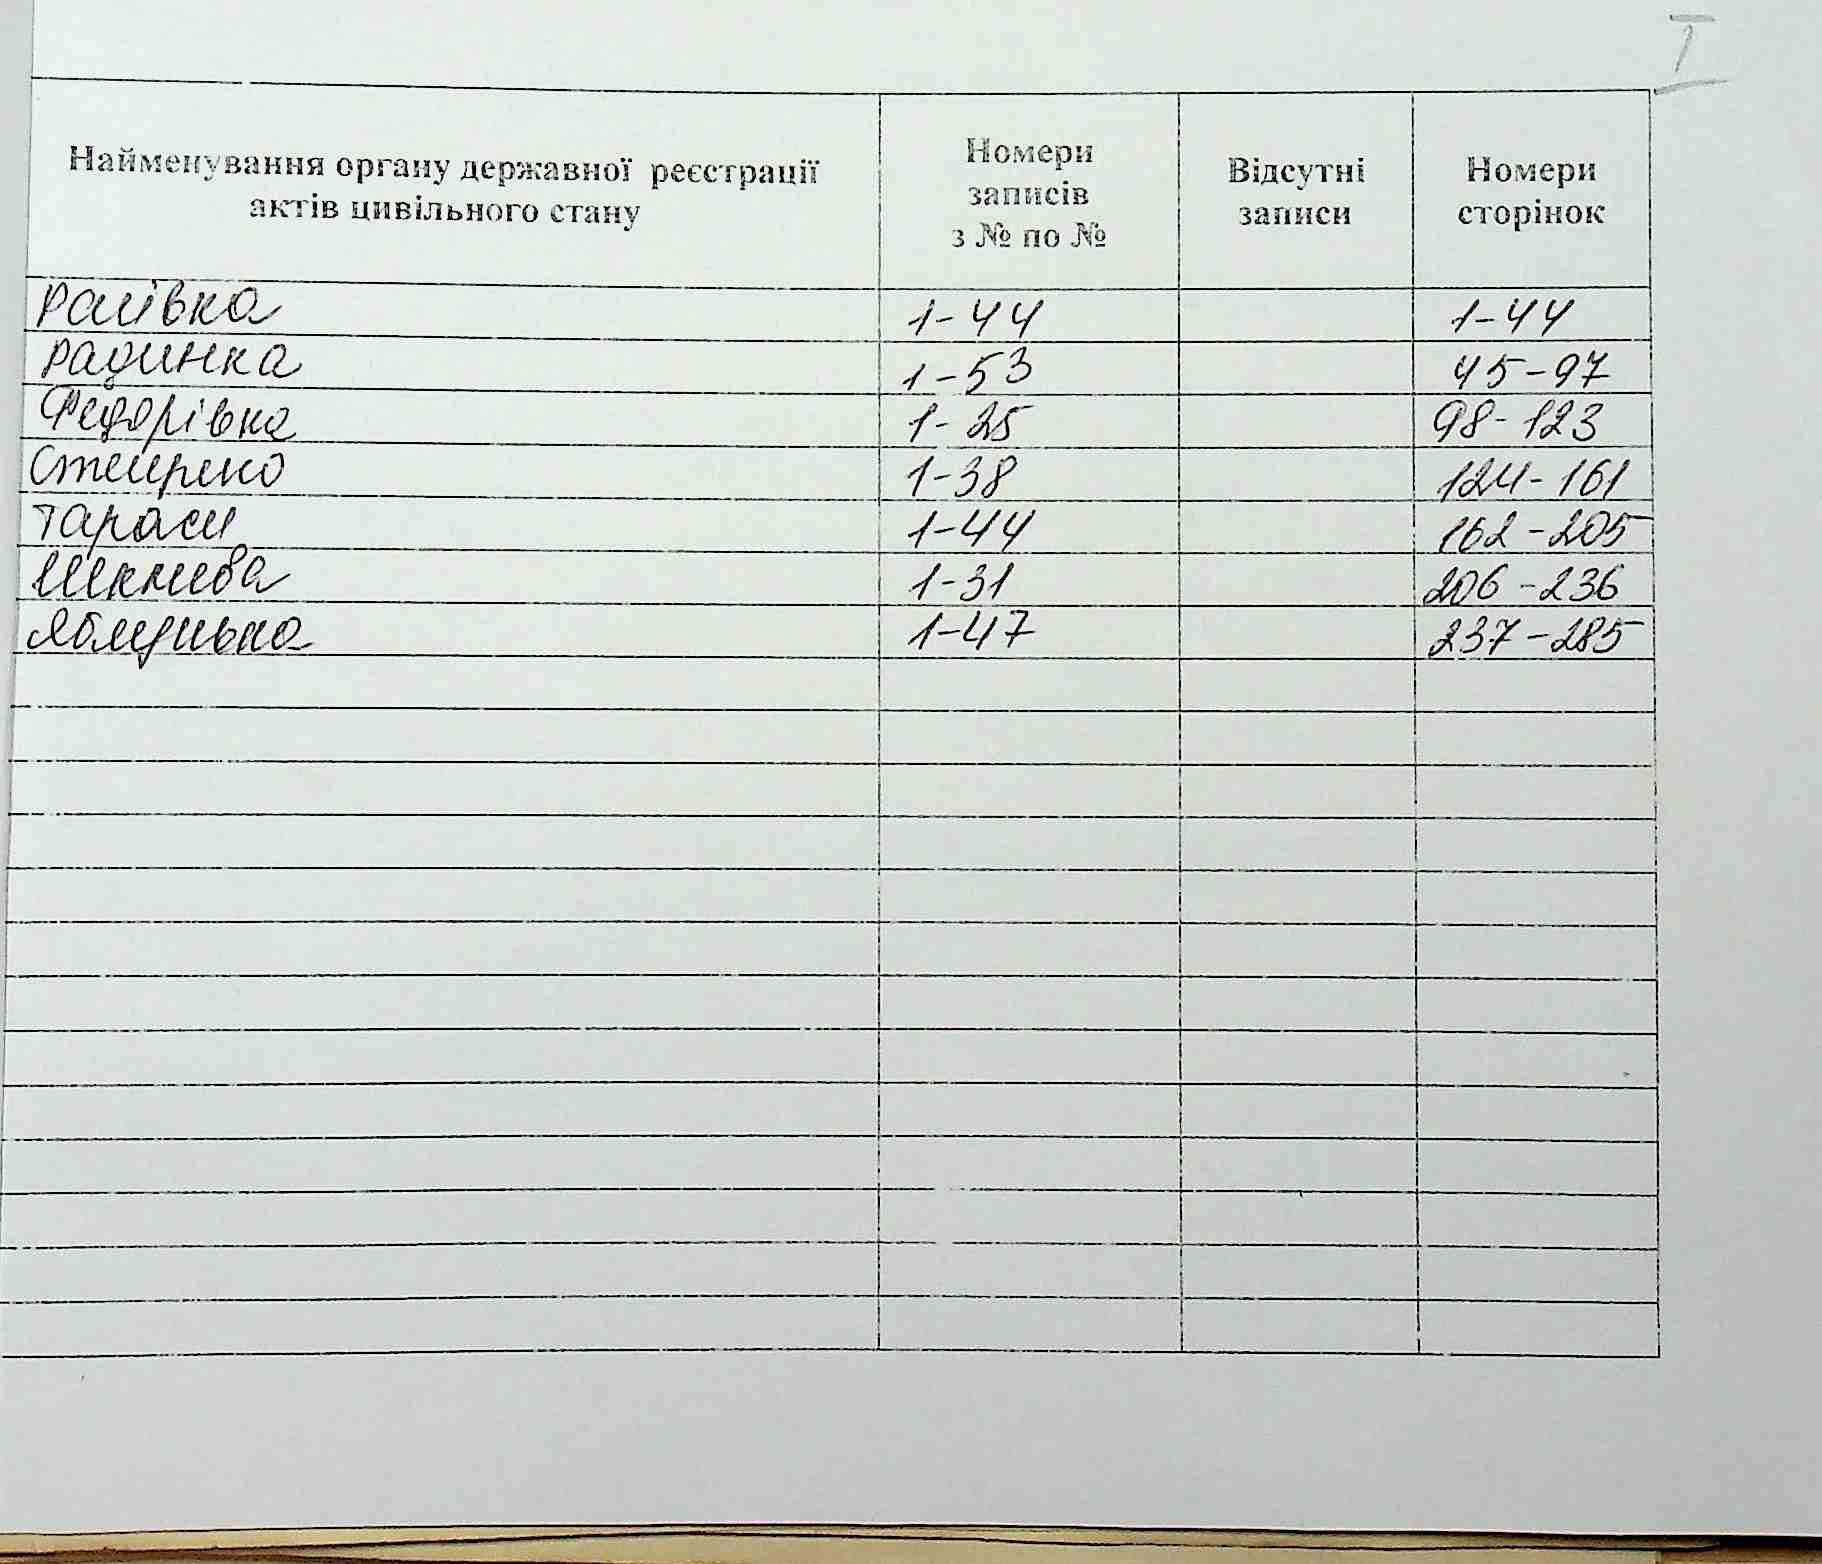 I
Найменування органу державної реєстрації
актів цивільного стану
Номери
записів
з № по №
Відсутні
записи
Номери
сторінок
Раївка 1-44 1-44
Радинка 1-53 45-97
Федорівка 1-25 98-123
1-38 124-161
Тараси 1-44 162-205
Шкнева 1-31 206-236
Яблунька 1-47 237-285